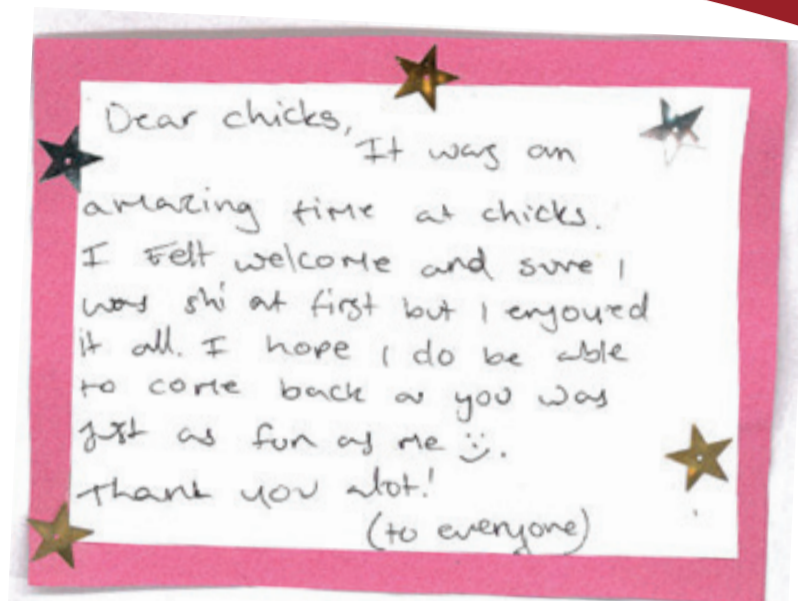 Dear chicks,
It was an
amazing time at chicks.
I Felt welcome and sure I
was shi at first but I enjoured
it all. I hope I do be able
to come back as you was
just as fun as me :).
Thank you alot!
(to everyone)